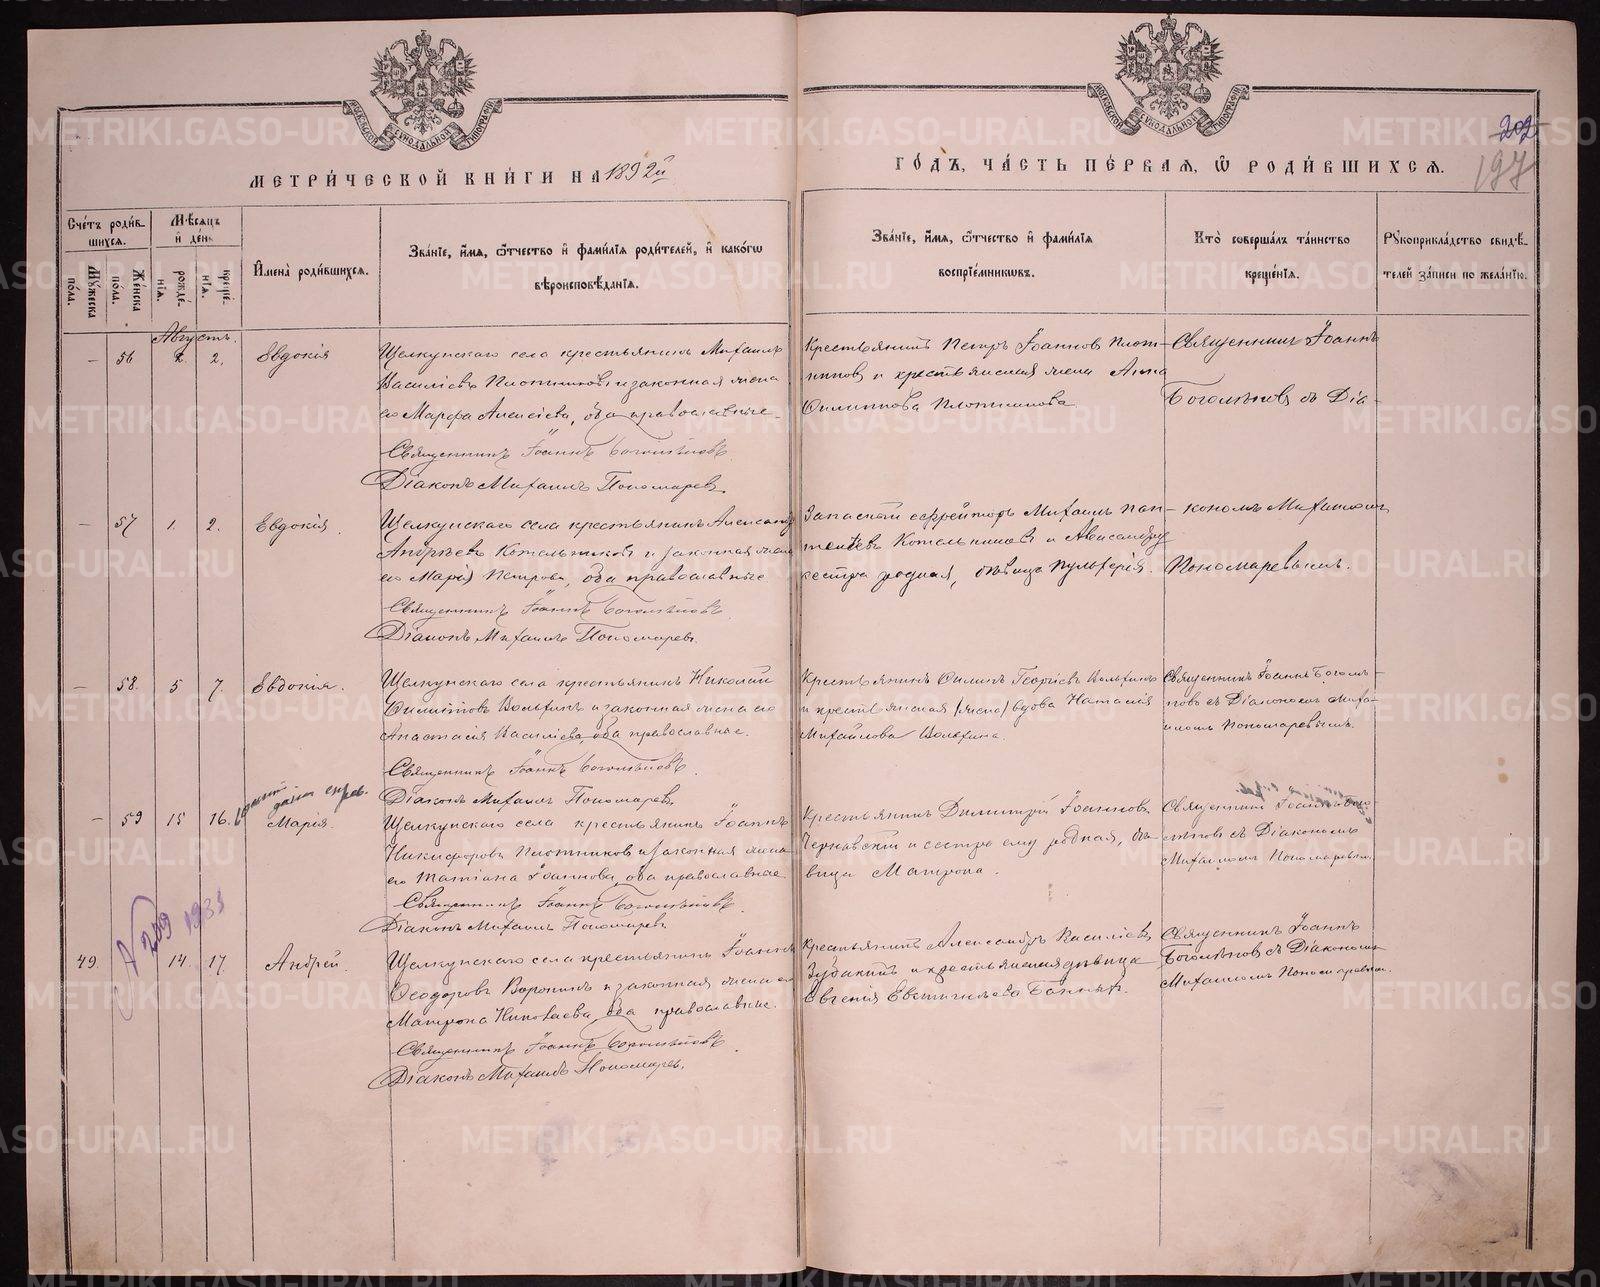 МЕТРИ́ЧЕСКОЙ КНИ́ГИ НА 1892й
ГО́ДЪ, ЧА́СТЬ ПЕ́РВАЯ, Ѡ РОДИ́ВШИХСЯ.
202
197
Сче́тъ роди́вшихся.
Мѣ́сяцъ и де́нь.
Му́жеска по́ла.
Же́нска по́ла.
рожде́нія.
креще́нія.
Имена̀ роди́вшихся.
Зва́ніе, и́мя, ѻ́тчество и фами́лія роди́телей, и како́гѡ
вѣроисповѣ́данія.
Зва́ніе, и́мя, ѻ́тчество и фами́лія
воспріе́мниковъ.
Кто̀ соверша́лъ та́инство
креще́нія.
Рꙋкоприкла́дство свидѣ́-
телей за́писи по жела́нію.
Августъ.
— 56 2. 2. Евдокія
Щелкунскаго села крестьянинъ Михаилъ
Василіевъ Плотниковъ и законная жена
его Марѳа Алексіева, оба православные.
Священникъ Іоаннъ Боголѣповъ
Діаконъ Михаилъ Пономаревъ
Крестьянинъ Петръ Іоанновъ Плот-
никовъ и крестьянская жена Анна
Филиппова Плотникова
Священникъ Іоаннъ
Боголѣповъ съ Діа-
— 57 1. 2. Евдокія
Щелкунскаго села крестьянинъ Александръ
Андреевъ Котельниковъ и законная жена
его Марія Петрова, оба православные
Священникъ Іоаннъ Боголѣповъ.
Діаконъ Михаилъ Пономаревъ.
Запасный ефрейторъ Михаилъ Пан-
телѣевъ Котельниковъ и Александру
сестра родная, дѣвица Пульхерія.
кономъ Михаиломъ
Пономаревымъ.
— 58. 5 7. Евдокія.
Щелкунскаго села крестьянинъ Николай
Филипповъ Вольхинъ и законная жена его
Анастасія Василіева, оба православные.
Священникъ Іоаннъ Боголѣповъ
Діаконъ Михаилъ Пономаревъ.
Крестьянинъ Филипъ Георгіевъ Вольхинъ
и крестьянская (жена) вдова Наталія
Михайлова Вольхина.
Священникъ Іоаннъ Боголѣ-
повъ съ Діакономъ Миха-
иломъ Пономаревымъ.
— 59 15 16. Марія.
Щелкунскаго села крестьянинъ Іоаннъ
Никифоровъ Плотниковъ и законная жена
его Татіана Іоаннова, оба православные
Священникъ Іоаннъ Боголѣповъ.
Діаконъ Михаилъ Пономаревъ
Крестьянинъ Димитрій Іоанновъ
Чернавскій и сестра ему родная, дѣ-
вица Матрона.
Священникъ Іоаннъ Бого-
лѣповъ съ Діакономъ
Михаиломъ Пономаревымъ.
209 1933
49. 14. 17. Андрей.
Щелкунскаго села крестьянинъ Іоаннъ
Ѳеодоровъ Воронинъ и законная жена его
Матрона Николаева, оба православные.
Священникъ Іоаннъ Боголѣповъ
Діаконъ Михаилъ Пономаревъ.
Крестьянинъ Александръ Василіевъ
Зубакинъ и крестьянская дѣвица
Евгенія
Священникъ Іоаннъ
Боголѣповъ съ Діакономъ
Михаиломъ Пономаревымъ.